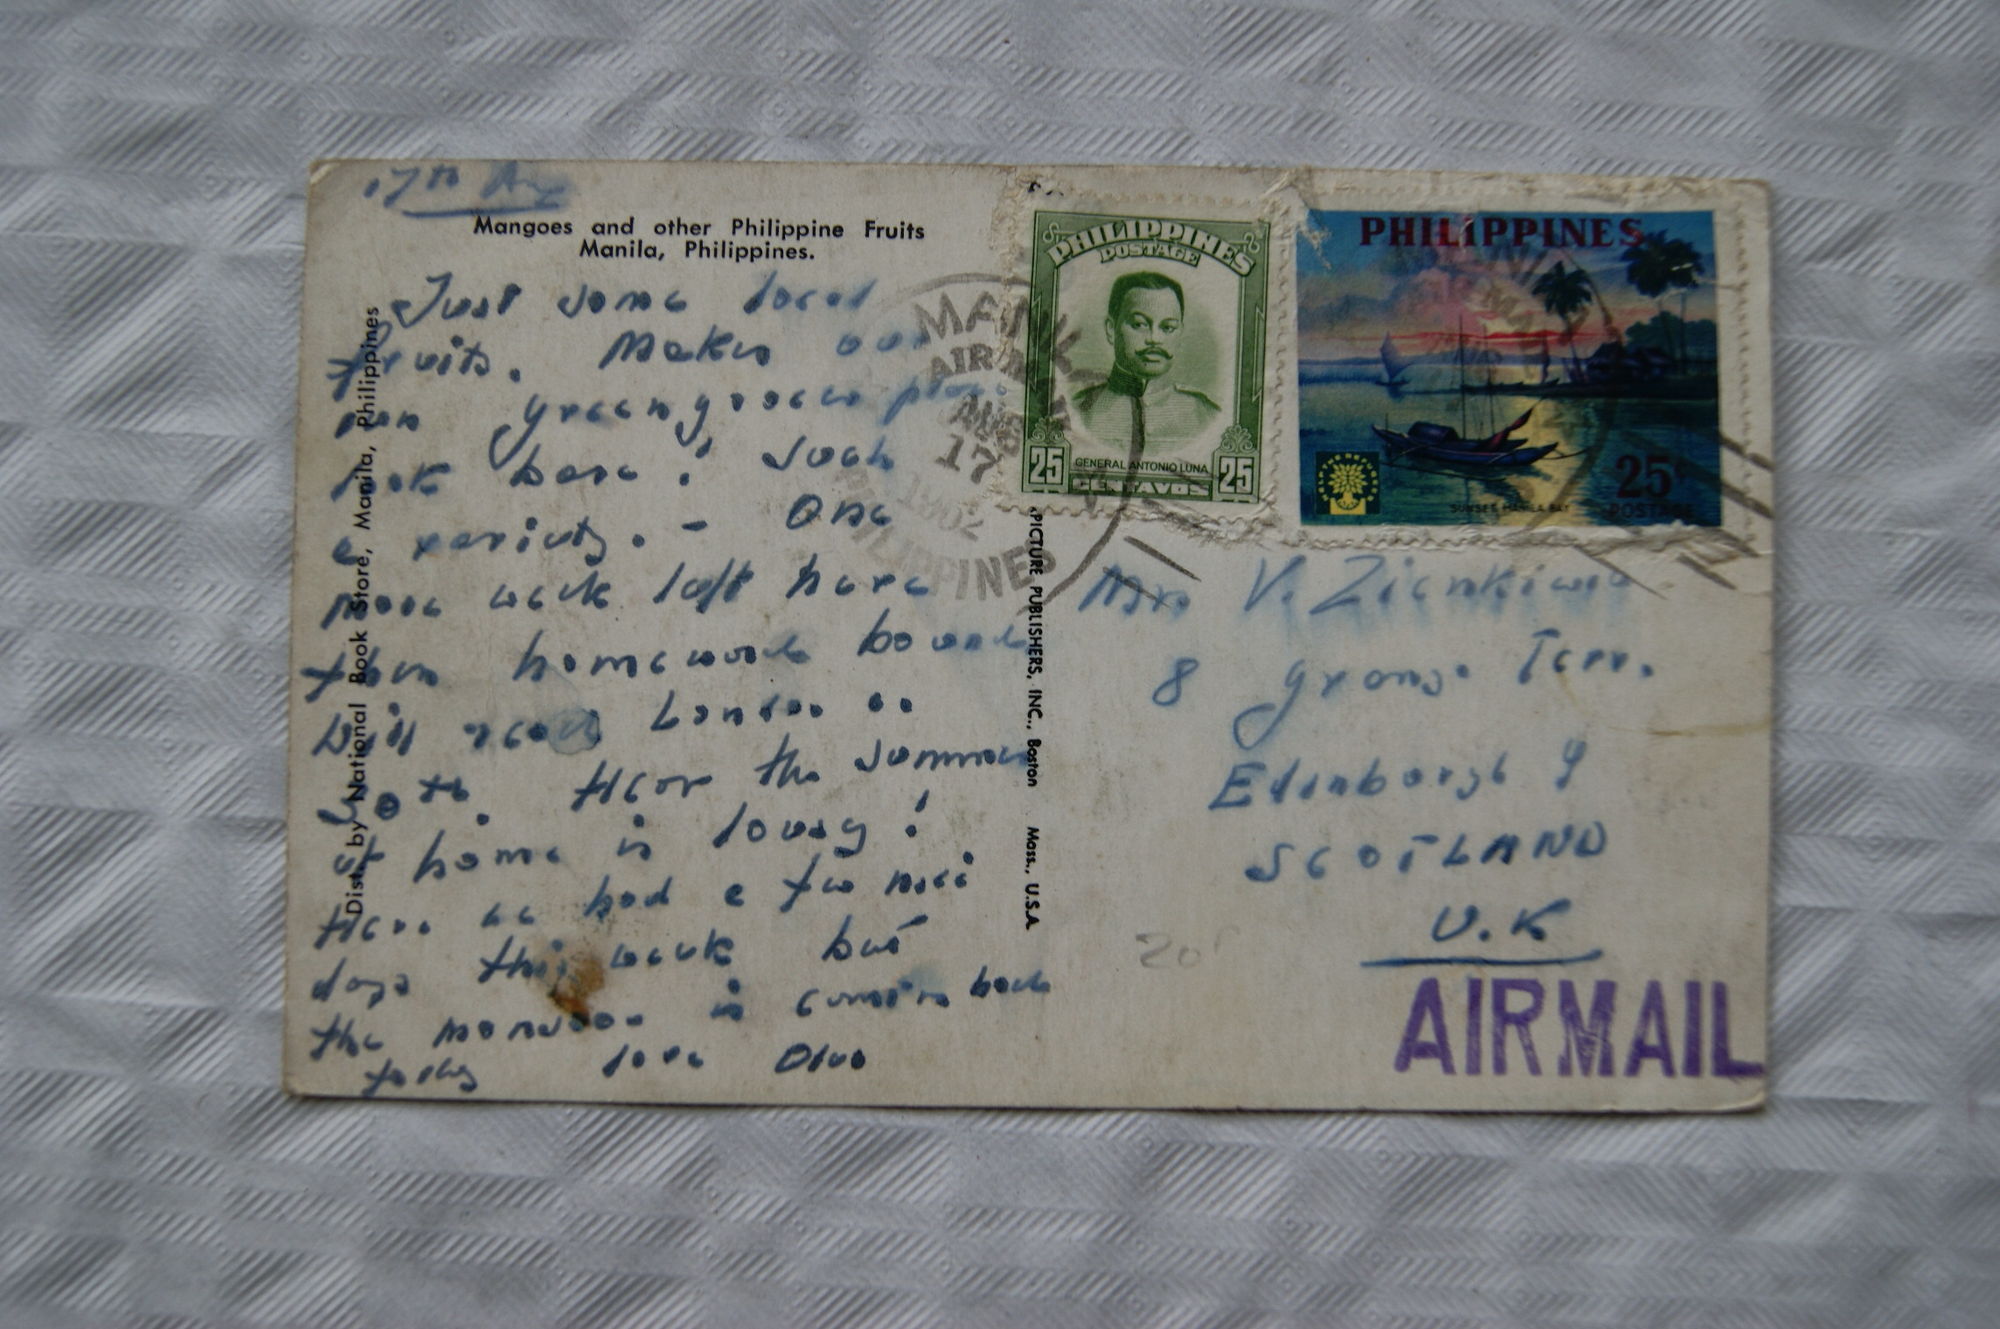 17th Aug
Mangoes and other Philippine Fruits
Manila, Philippines.
Just some local
fruits. Makes our
own greengrocers
look bare! Such
a variety. - One
more week left here
then homewards bound
Will reach London on
Hear the summer
at home is lousy!
Here we had a few nice
days this week but
the monsoon is coming back
today love
Distr. by National Book Store, Manila, Philippines
PICTURE PUBLISHERS, INC., Boston Mass., U.S.A.
MANILA
AIR MAIL
AUG
17
1962
PHILIPPINES
PHILIPPINES
POSTAGE
GENERAL ANTONIO LUNA
25 CENTAVOS 25
PHILIPPINES
25c
SUNSET, MANILA BAY POSTAGE
Mrs V. Zienkiewicz
8 Grange Terr.
Edinburgh 9
SCOTLAND
U.K
20
AIRMAIL